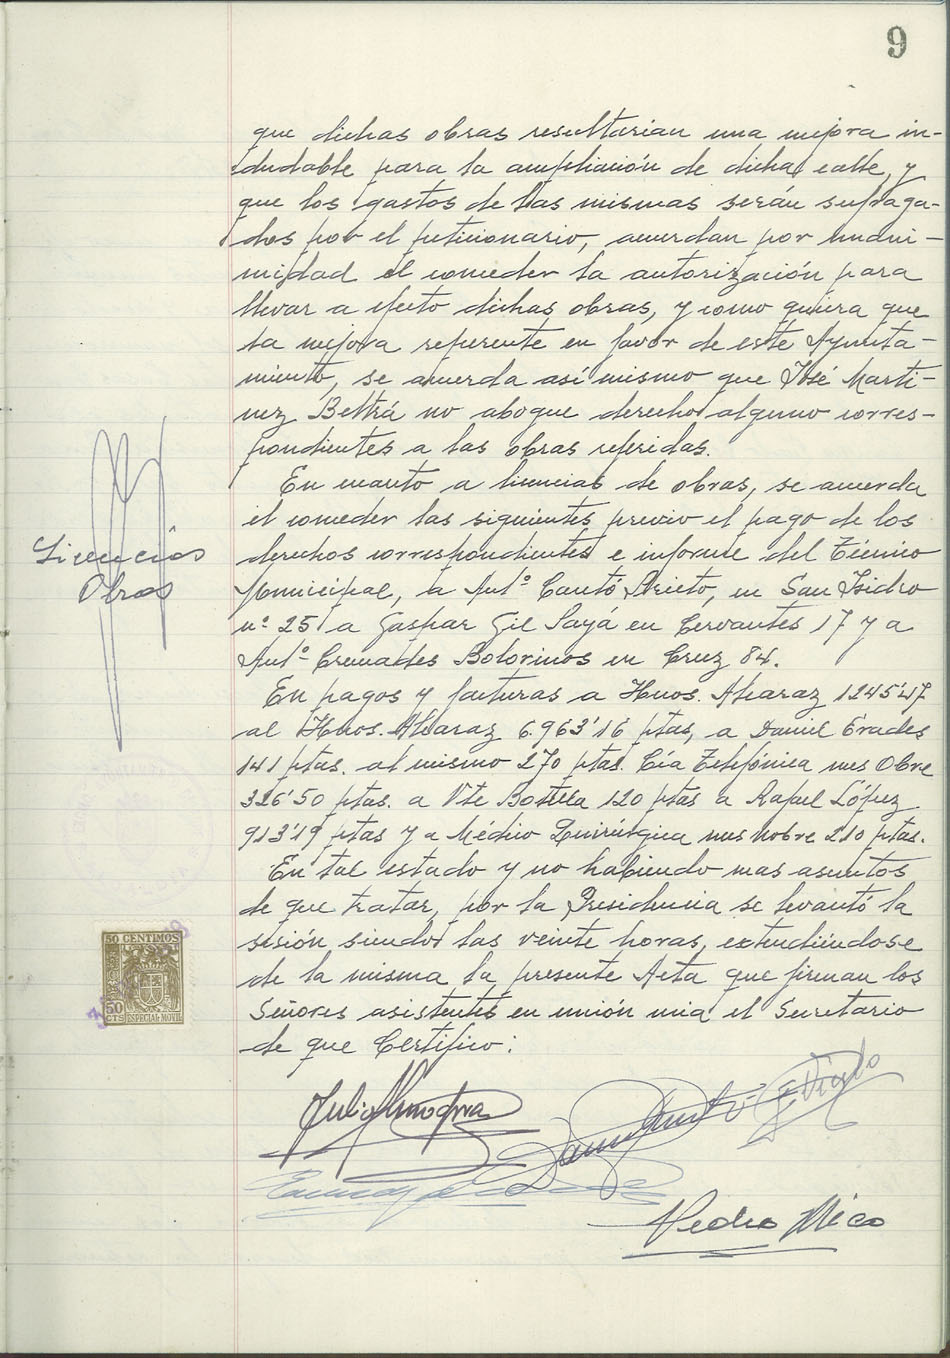 9
que dichas obras resultarían una mejora in-
dudable para la ampliación de dicha calle, y
que los gastos de las mismas serán sufraga-
dos por el peticionario, acuerdan por unani-
midad el conceder la autorización para
llevar a efecto dichas obras, y como quiera que
la mejora referente en favor de este Ayunta-
miento, se acuerda así mismo que José Marti-
nez Beltrá no abogue derecho alguno corres-
pondientes a las obras referidas.
Licencias
Obras
En cuanto a licencias de obras, se acuerda
el conceder las siguientes previo el pago de los
derechos correspondientes e informe del Técnico
Municipal, a Antº Cantó Prieto, en San Isidro
nº 25 a Gaspar Gil Payá en Cervantes 17 y a
Antº Cremades Bolorinos en Cruz 84.
En pagos y facturas a Hnos. Alcaraz 1245'47
al Hnos. Alcaraz 6.963'16 ptas, a Daniel Erades
141 ptas. al mismo 270 ptas. Cía Telefónica mes Obre
326'50 ptas. a Vte Botella 120 ptas a Rafael López
913'19 ptas y a Médico Quirúrgica mes nobre 210 ptas.
En tal estado y no habiendo mas asuntos
de que tratar, por la Presidencia se levantó la
sesión siendo las veinte horas, extendiéndose
de la misma la presente Acta que firman los
Señores asistentes en unión mia el Secretario
de que Certifico:
50 CENTIMOS
50
CTS ESPECIAL MOVIL
Pedro Mico